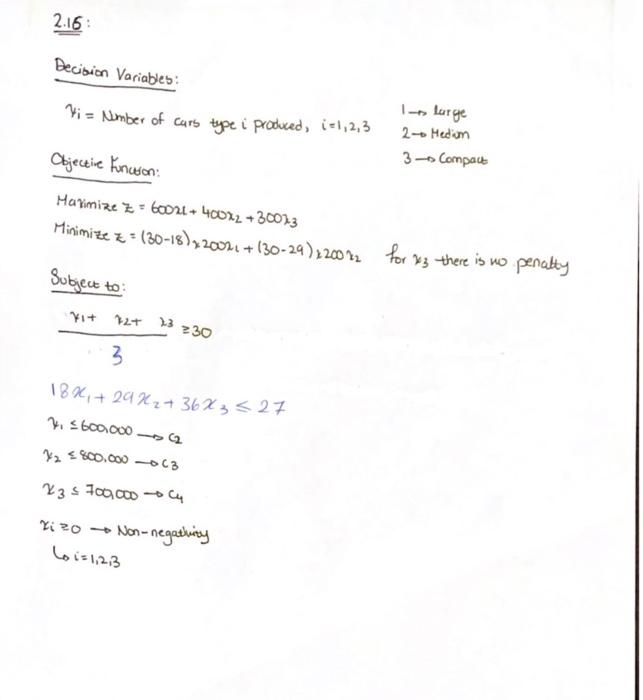 2.16:
Decision Variables:
xi = Number of cars type i produced, i=1,2,3
1→ Large
2→ Medium
3→ Compact
Objective Function:
Maximize z = 600x1 + 400x2 + 300x3
Minimize z = (30-18)x200x1 + (30-29)x200x2 for x3 there is no penalty
Subject to:
x1+ x2+ x3 ≥30
3
18x1 + 29x2 + 36x3 ≤ 27
x1 ≤ 600,000 → C2
x2 ≤ 800,000 → C3
x3 ≤ 700,000 → C4
xi ≥0 → Non-negativity
↳ i=1,2,3